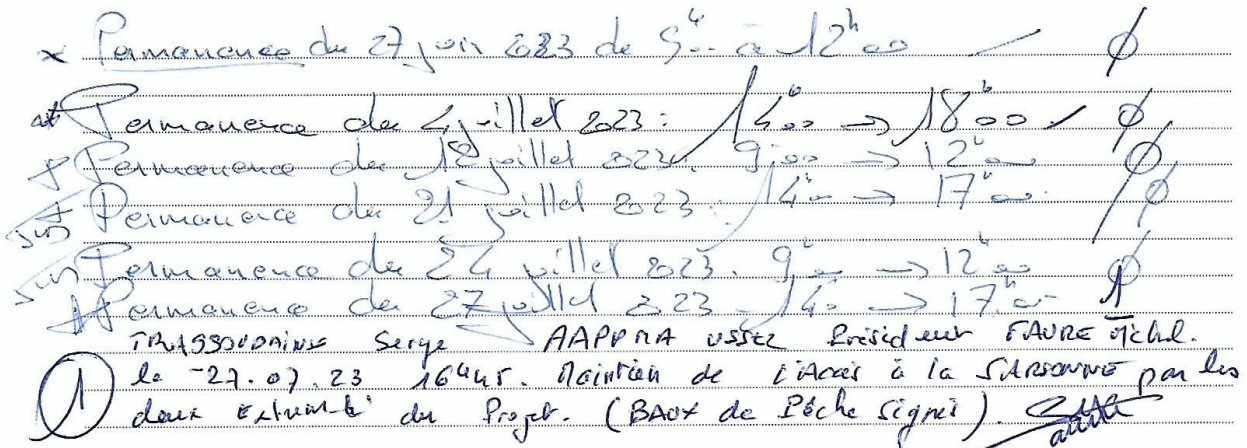 x Permanence du 27 juin 2023 de 9h00 à 12h00 Ø
Permanence du 4 juillet 2023 : 14h00 → 18h00 Ø
Permanence du 12 juillet 2023. 9h00 → 12h00 Ø
Permanence du 21 juillet 2023 : 14h00 → 17h00. Ø
Permanence du 24 juillet 2023. 9h00 → 12h00 Ø
Permanence du 27 juillet 2023 14h00 → 17h00 1
TRASSOUDAINE Serge AAPPMA USSEL Président FAURE Michel.
① le 27.07.23 16h45. Maintien de l'Accès à la SARSONNE par les
deux Extrémités du Projet. (BAUX de Pêche signés).